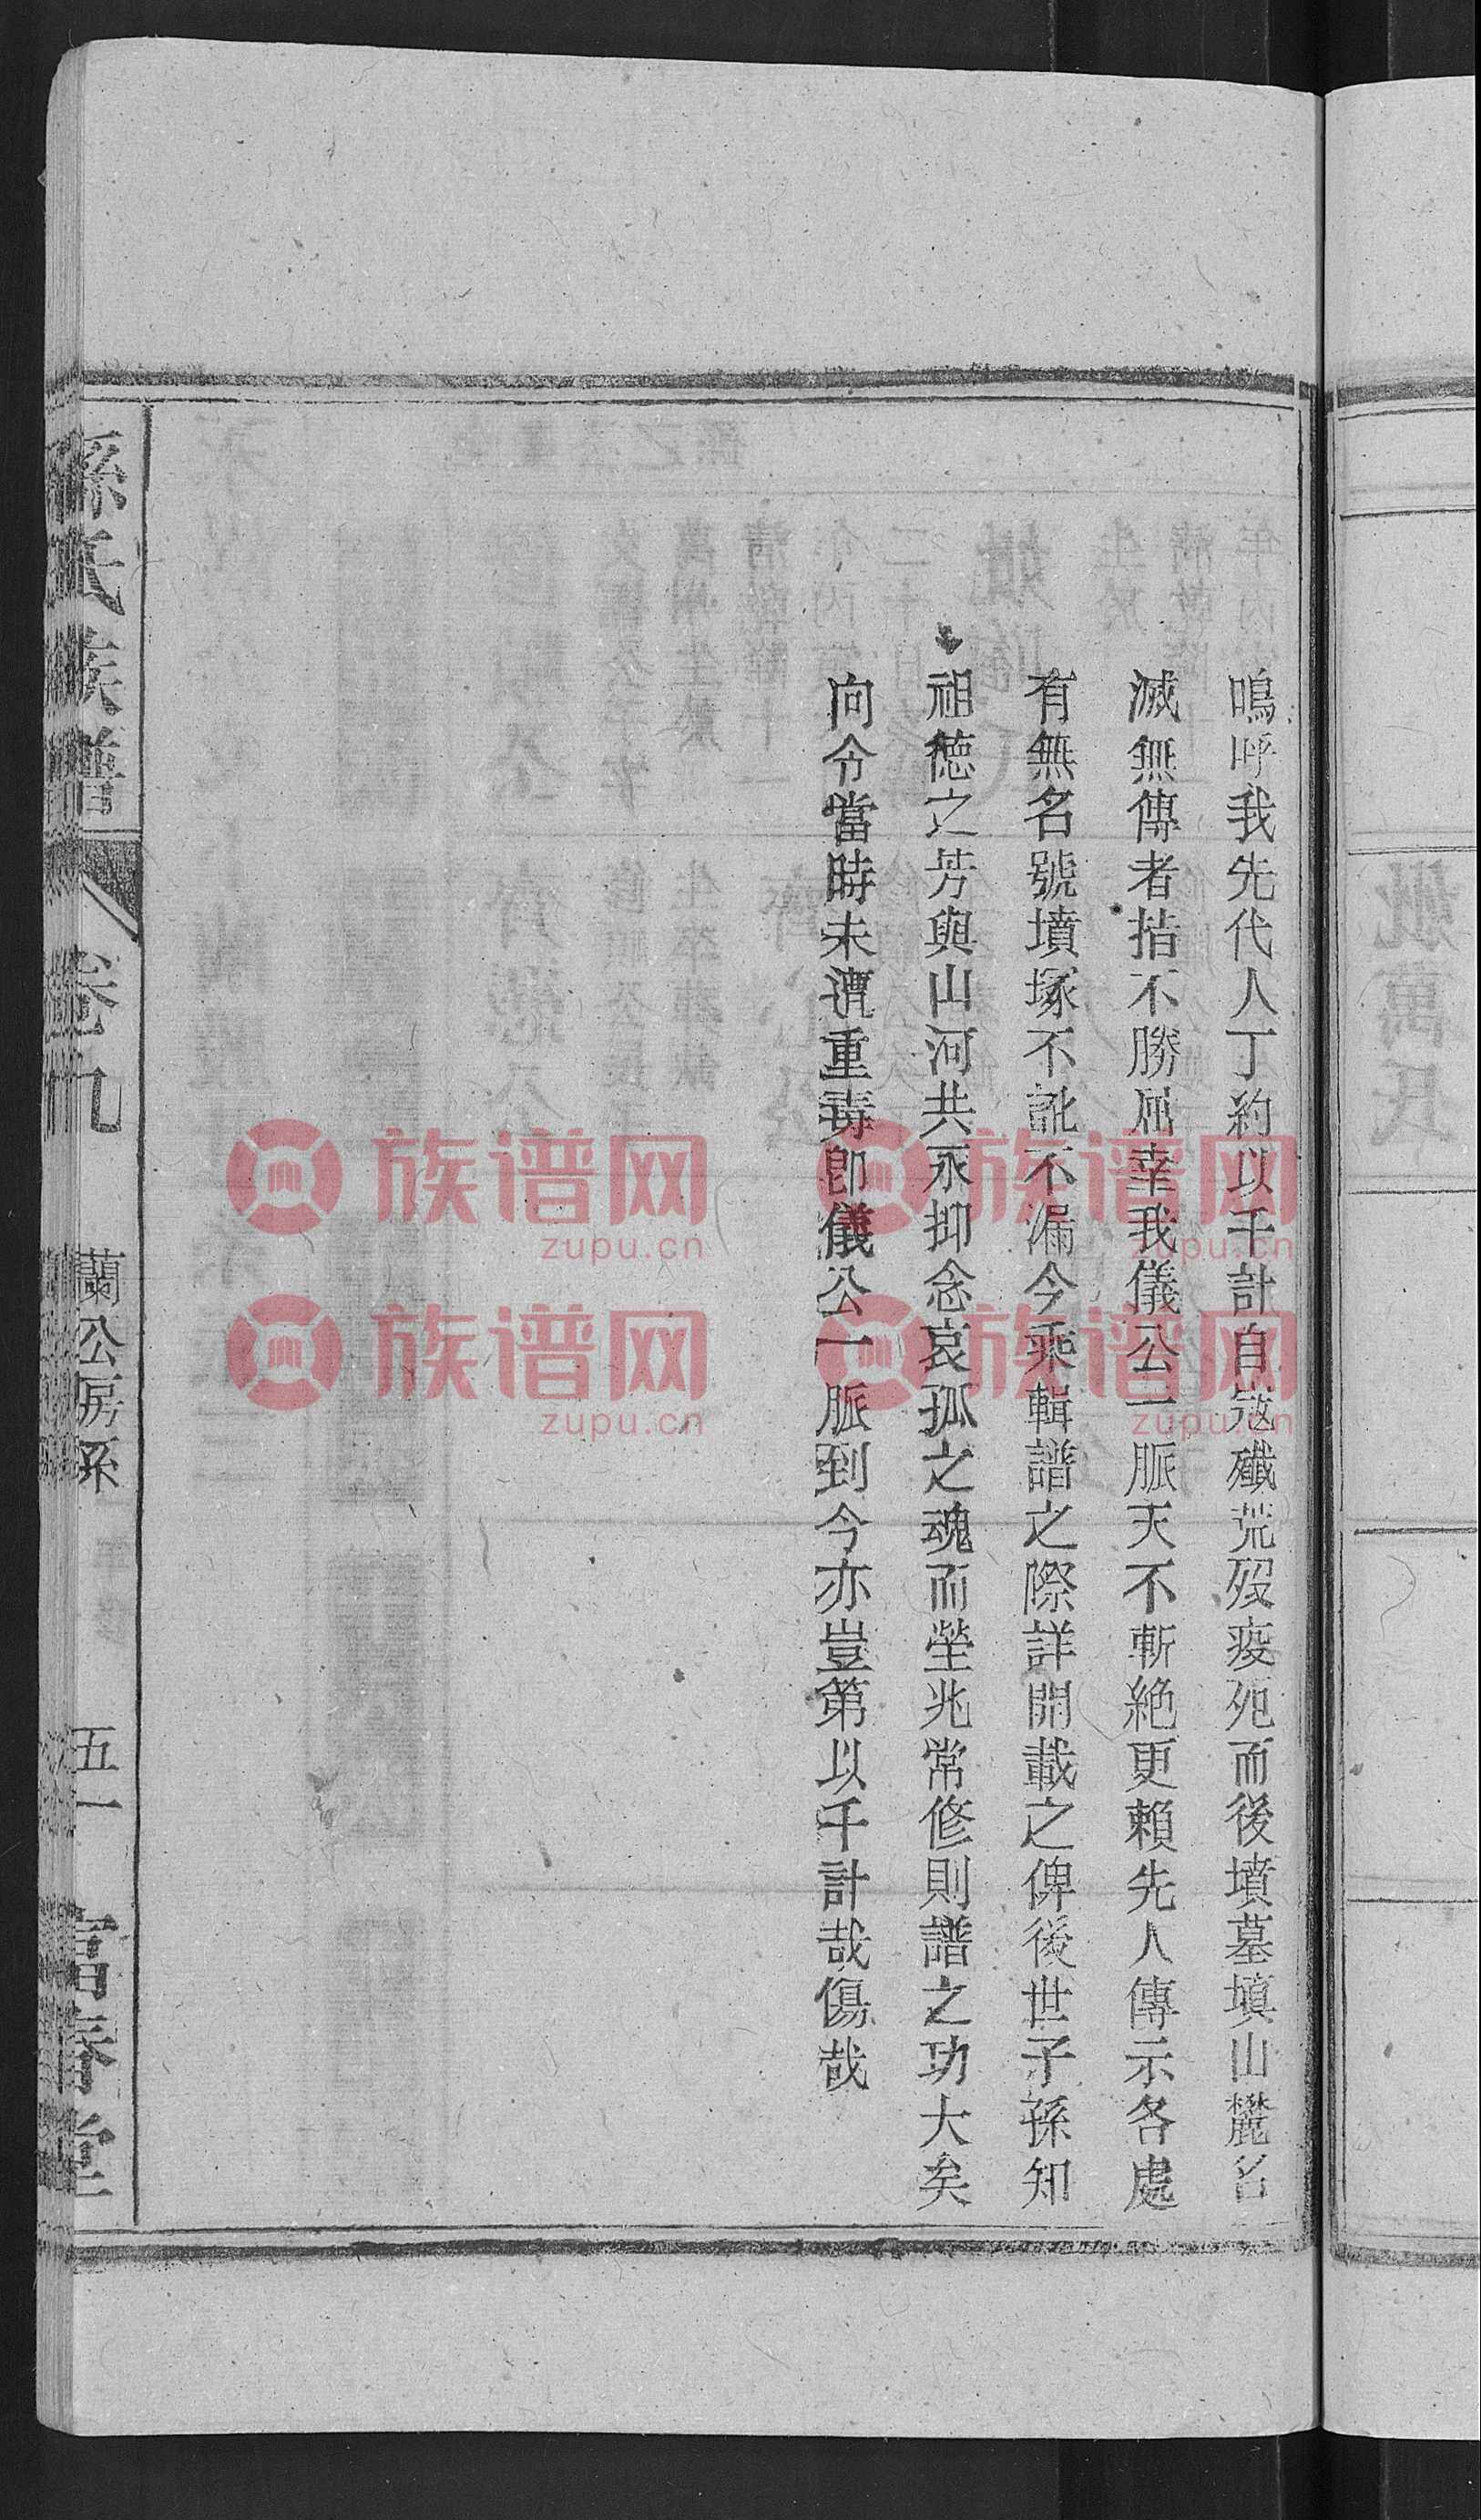 嗚呼我先代人丁約以千計自寇殲荒歿疫死而後墳墓填山麓名
滅無傳者指不勝屈幸我儀公一脈天不斬絶更賴先人傳示各處
有無名號墳塚不訛不漏今乘輯譜之際詳開載之俾後世子孫知
祖德之芳與山河共永抑念哀孤之魂而塋兆常修則譜之功大矣
向令當時未遭重毒卽儀公一脈到今亦豈第以千計哉傷哉
孫氏族譜 卷九 蘭公房系 五一 富春堂
妣萬氏
族谱网
zupu.cn
族谱网
zupu.cn
族谱网
zupu.cn
族谱网
zupu.cn